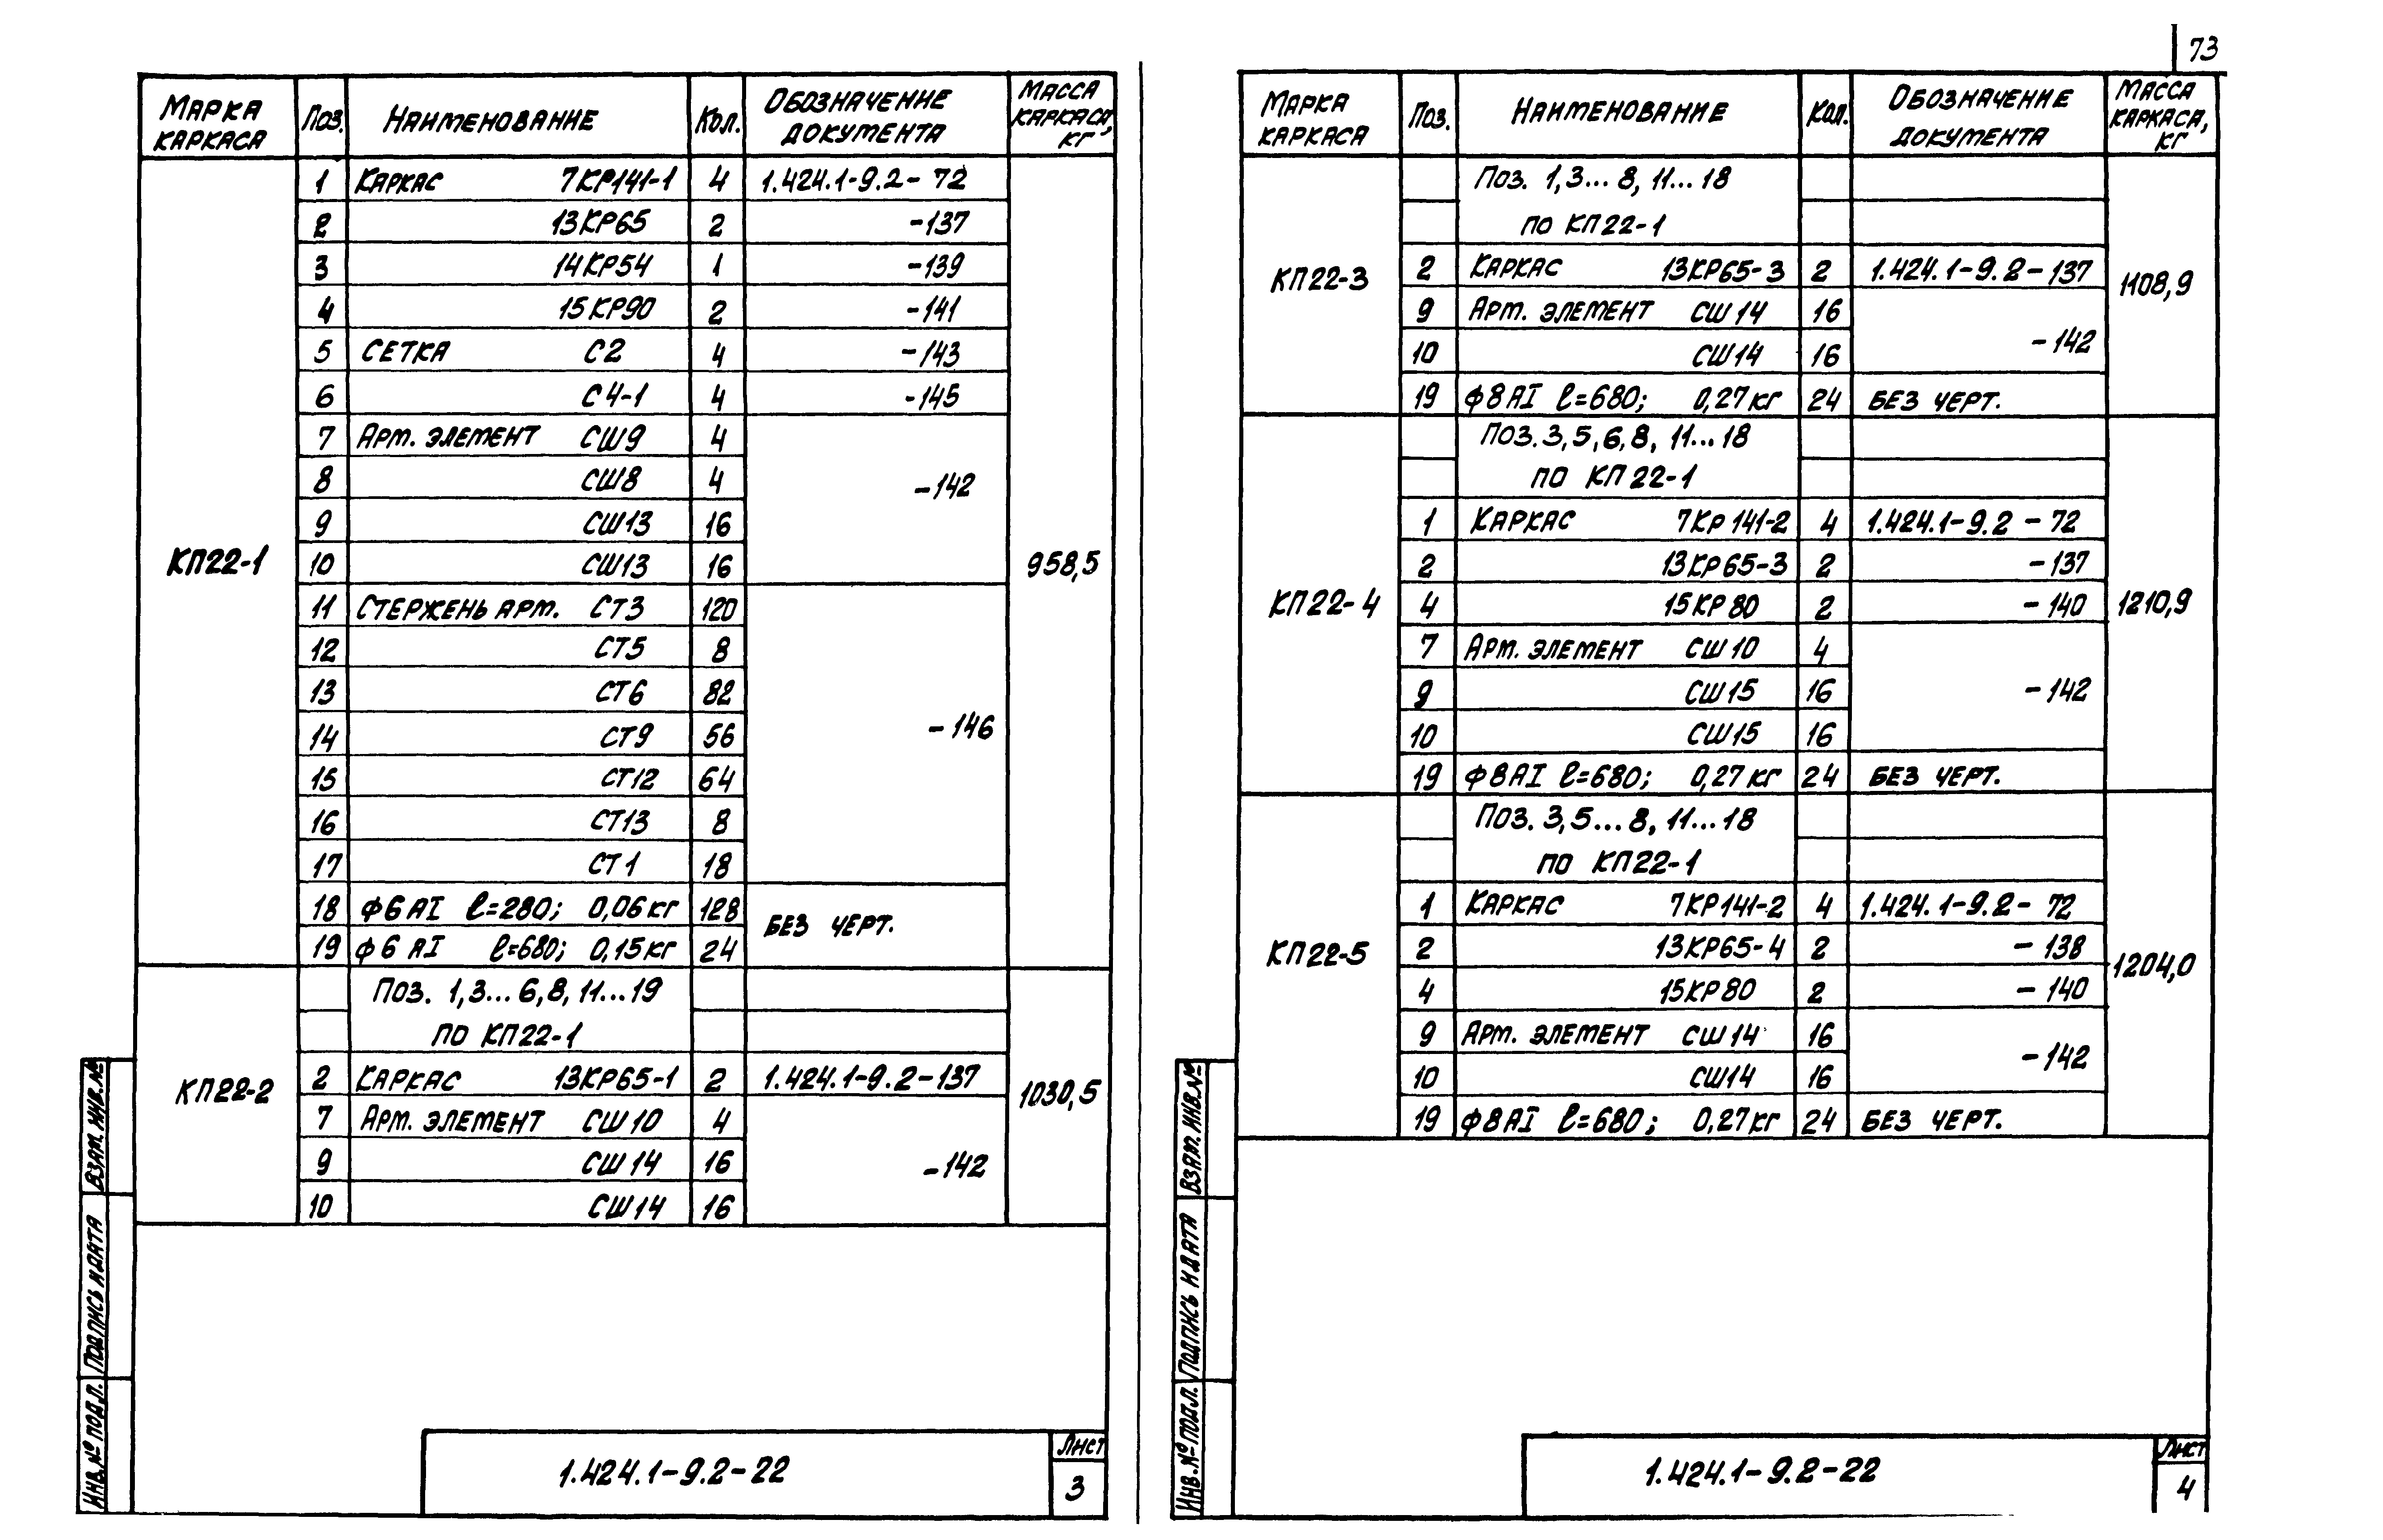 73
Марка каркаса Поз. Наименование Кол. Обозначение документа Масса каркаса, кг
КП22-1 958,5
1 Каркас 7КР141-1 4 1.424.1-9.2-72
2 13КР65 2 -137
3 14КР54 1 -139
4 15КР90 2 -141
5 Сетка С2 4 -143
6 С4-1 4 -145
7 Арм. элемент СШ9 4
8 СШ8 4 -142
9 СШ13 16
10 СШ13 16
11 Стержень арм. СТ3 120
12 СТ5 8
13 СТ6 82
14 СТ9 56 -146
15 СТ12 64
16 СТ13 8
17 СТ1 18
18 ф6АI ℓ=280; 0,06кг 128 без черт.
19 ф6АI ℓ=680; 0,15кг 24
КП22-2 1030,5
Поз. 1,3...6,8,11...19
по КП22-1
2 Каркас 13КР65-1 2 1.424.1-9.2-137
7 Арм. элемент СШ10 4
9 СШ14 16 -142
10 СШ14 16
1.424.1-9.2-22
Лист
3
Взам. инв. №
Подпись и дата
Инв. № подл.
Марка каркаса Поз. Наименование Кол. Обозначение документа Масса каркаса, кг
КП22-3 1108,9
Поз. 1,3...8, 11...18
по КП22-1
2 Каркас 13КР65-3 2 1.424.1-9.2-137
9 Арм. элемент СШ14 16
10 СШ14 16 -142
19 ф8АI ℓ=680; 0,27кг 24 без черт.
КП22-4 1210,9
Поз. 3,5,6,8, 11...18
по КП22-1
1 Каркас 7КР141-2 4 1.424.1-9.2-72
2 13КР65-3 2 -137
4 15КР80 2 -140
7 Арм. элемент СШ10 4
9 СШ15 16 -142
10 СШ15 16
19 ф8АI ℓ=680; 0,27кг 24 без черт.
КП22-5 1204,0
Поз. 3,5...8, 11...18
по КП22-1
1 Каркас 7КР141-2 4 1.424.1-9.2-72
2 13КР65-4 2 -138
4 15КР80 2 -140
9 Арм. элемент СШ14 16
10 СШ14 16 -142
19 ф8АI ℓ=680; 0,27кг 24 без черт.
1.424.1-9.2-22
Лист
4
Взам. инв. №
Подпись и дата
Инв. № подл.